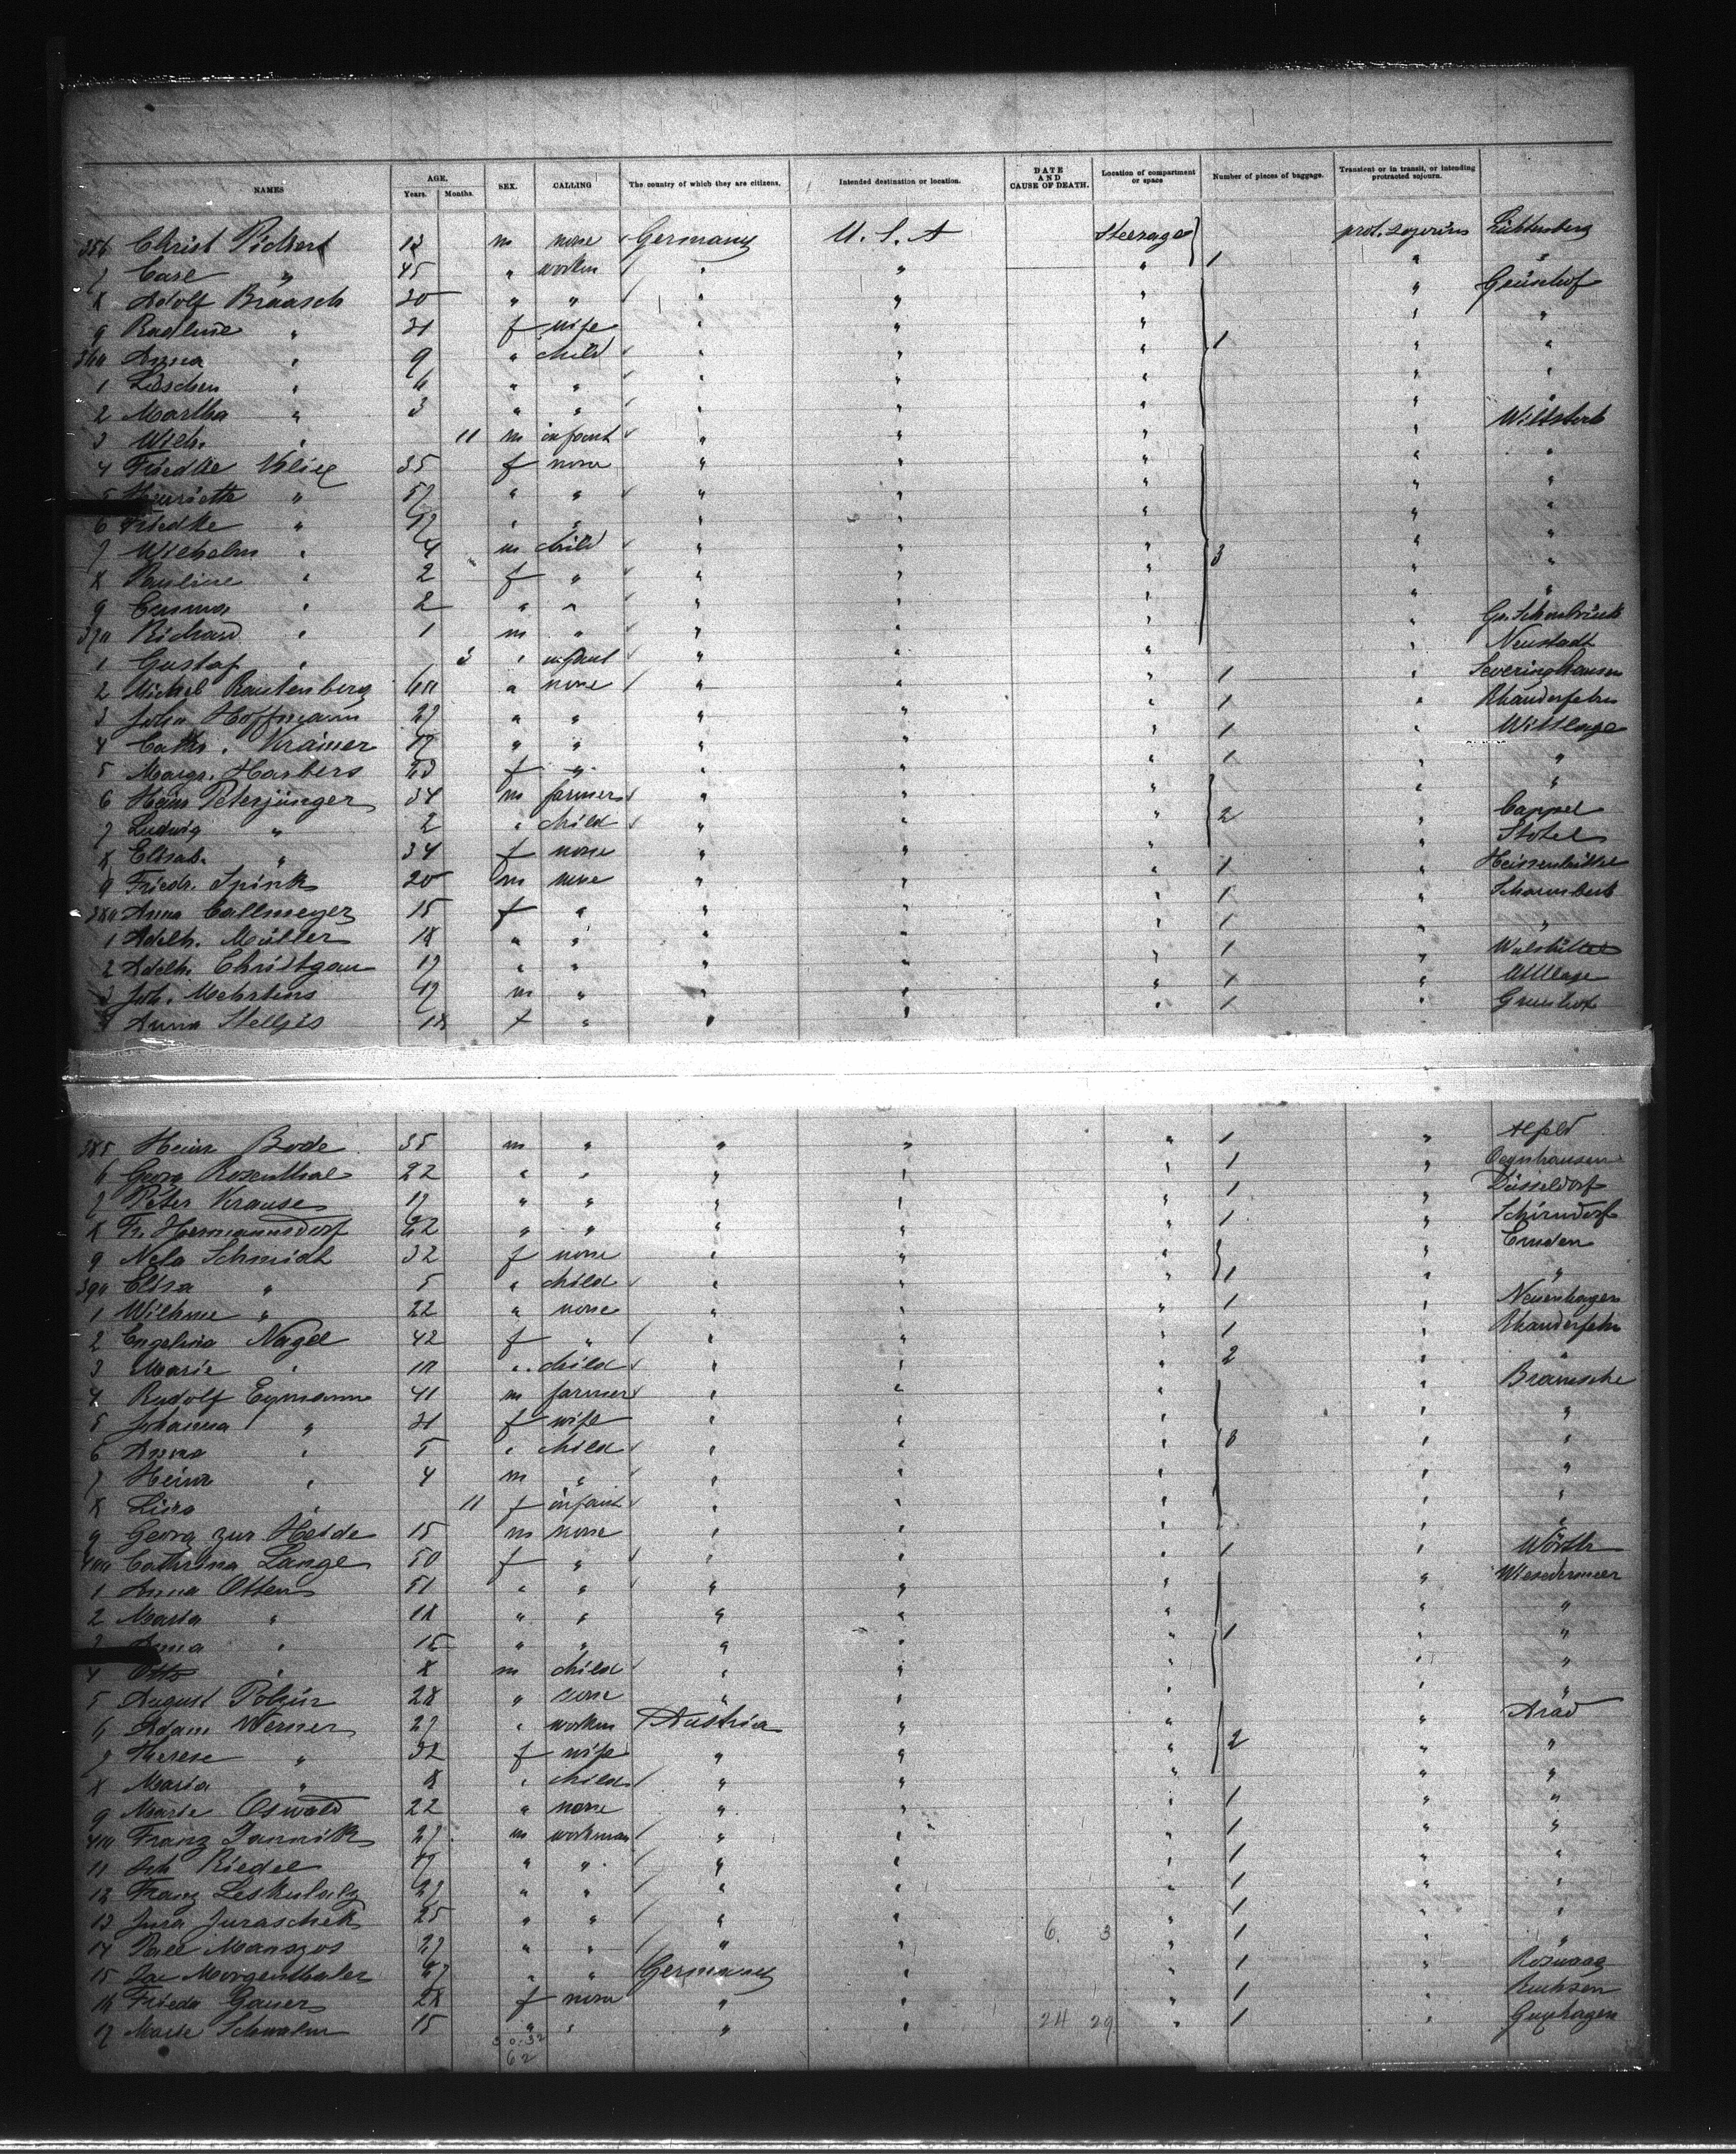 NAMES AGE. Years. Months. SEX. CALLING The country of which they are citizens. Intended destination or location. DATE AND CAUSE OF DEATH. Location of compartment or space Number of pieces of baggage. Transient or in transit, or intending protracted sojourn.
356 Christ Pickert 13 m none Germany U. S. A Steerage prot. sojourn Lichtenberg
7 Carl " 45 " worker " " " 1 " "
8 Adolf Braasch 30 " " " " " " Grünhof
9 " 31 f wife " " " " "
360 Anna " 9 " child " " " 1 " "
1 " 6 " " " " " " "
2 Martha " 3 " " " " " " "
3 Wilh. " 11 m infant " " " "
4 Friedke 35 f none " " " " "
5 Henriette " 57 " " " " " " "
6 Friedke " " " " " " " "
7 Wilhelm " 4 m child " " " 3 " "
8 Pauline " 2 f " " " " " "
9 Emma " 2 " " " " " " "
370 Richard " 1 m " " " " "
1 Gustaf " 3 " infant " " " " Neustadt
2 Michel Rautenberg 60 " none " " " 1 " Severinghausen
3 John Hoffmann 27 " " " " " 1 " Rhauderfehn
4 Cath. Krämer 17 " " " " " 1 " Wittlage
5 Margr. Harbers 23 f " " " " 1 " "
6 Heinr Petersjünger 34 m farmer " " " " "
7 Ludwig " 2 " child " " " 2 " Cappel
8 Elisab. " 34 f none " " " " Stotel
9 Friedr. Spink 20 m none " " " 1 "
380 Anna Callmeyer 15 f " " " " 1 " Scharmbeck
1 Adelh. Müller 18 " " " " " 1 " "
2 Adelh. Christgau 17 " " " " " 1 "
3 Joh. Mehrtens 17 m " " " " 1 " Wittlage
4 Anna Stelljes 18 f " " " " 1 " Grünhof
385 Heinr Bode 35 m " " " " 1 " Alfeld
6 Georg Rosenthal 22 " " " " " 1 " Oeynhausen
7 Peter Krause 17 " " " " " 1 " Düsseldorf
8 Fr. Hermannsdorf 22 " " " " " 1 " Schirndorf
9 Nela Schmidt 32 f none " " " " Emden
390 Elisa " 5 " child " " " 1 " "
1 Wilhme " 22 " none " " " 1 " Neuenhagen
2 Engelina Nagel 42 f " " " " 1 " Rhauderfehn
3 Marie " 10 " child " " " 2 " "
4 Rudolf Eymann 41 m farmer " " " " Bramsche
5 Johanna " 31 f wife " " " " "
6 Anna " 5 " child " " " 3 " "
7 Heinr " 4 m " " " " " "
8 Lina " 11 f infant " " " " "
9 Georg zur Heide 15 m none " " " " "
400 Cathrina Lange 50 f " " " " 1 " Wörth
1 Anna Otten 51 " " " " " " Wiesedermeer
2 Maria " 18 " " " " " " "
3 Anna " 15 " " " " " 1 " "
4 Otto " 8 m child " " " " "
5 August Polzin 28 " none " " " " "
6 Adam Werner 27 " worker Austria " " " Arad
7 Therese " 32 f wife " " " 2 " "
8 Maria " 8 " child " " " " "
9 Marie Oswald 22 " none " " " 1 " "
410 Franz Jannik 27 m workman " " " 1 " "
11 Joh Riedel 17 " " " " " 1 " "
12 Franz 27 " " " " " 1 " "
13 Jura Juraschek 25 " " " " 6. 3 " 1 " "
14 27 " " " " " 1 " "
15 Morgenthaler 27 " " Germany " " 1 "
16 Frieda Gauer 28 f none " " " 1 " Ruchsen
17 Marie Schwalm 15 " " " " 24 29 " 1 " Guxhagen
30.32
62